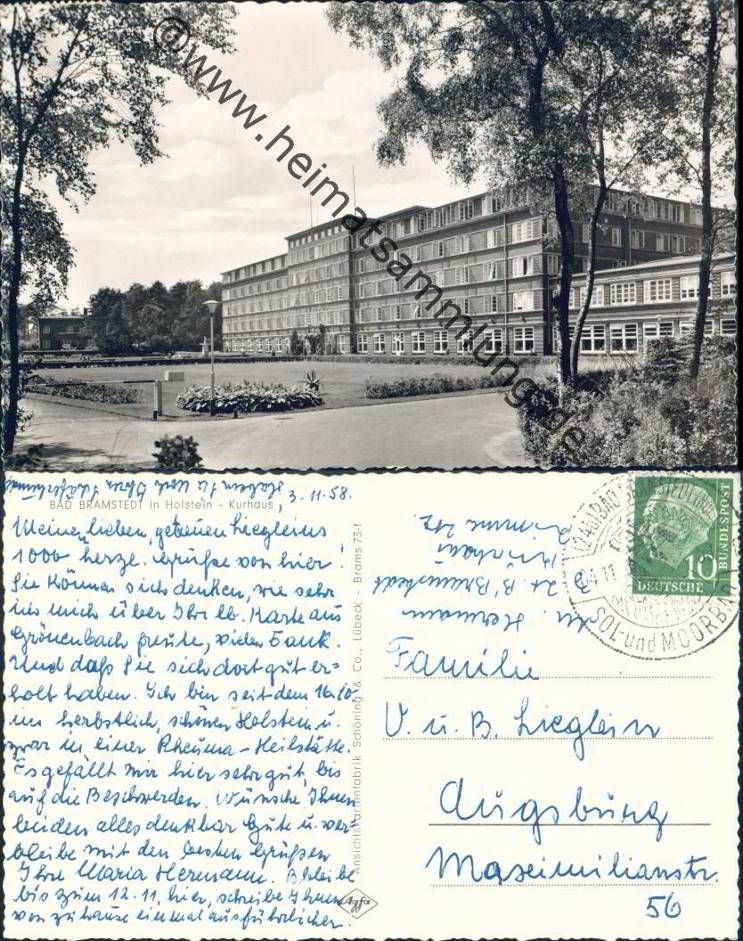 ©www.heimatsammlung.de
BAD BRAMSTEDT in Holstein - Kurhaus
3. 11. 58.
Meine lieben, getreuen Liegleins
1000 herzl. Grüße von hier!
Sie können sich denken, wie sehr
ich mich über Ihre lb. Karte aus
Grönenbach freute, vielen Dank.
Und daß Sie sich dort gut er=
holt haben. Ich bin seit dem 16.10.
im herbstlich, schönen Holstein u.
zwar in einer Rheuma-Heilstätte.
Es gefällt mir hier sehr gut, bis
auf die Beschwerden. Wünsche Ihnen
beiden alles denkbar Gute u. ver-
bleibe mit den besten Grüßen
Ihre Maria Hermann. Bleibe
bis zum 12.11. hier, schreibe Ihnen
von zuhause einmal ausführlicher.
Ansichtskartenfabrik Schöning & Co., Lübeck - Brams 73-f
Agfa
M. Hermann
Zt. B' Bramstedt
Kurhaus
Zimmer
10
DEUTSCHE
BUNDESPOST
(24b) BAD BRAMSTEDT
SOL- und MOORBAD
Familie
V. u. B. Lieglein
Augsburg
Maximilianstr.
56